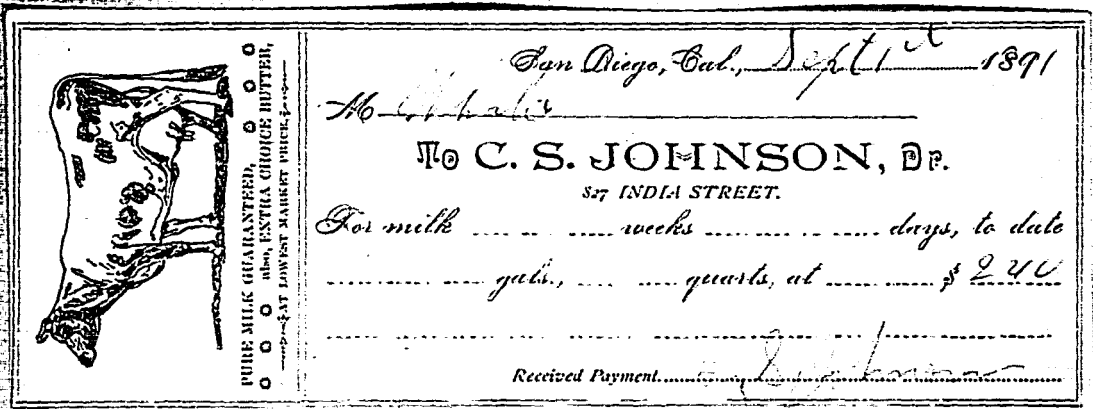 PURE MILK GUARANTEED,
also, EXTRA CHOICE BUTTER,
AT LOWEST MARKET PRICE.
San Diego, Cal., Sept 1st 1891
M
To C. S. JOHNSON, Dr.
827 INDIA STREET.
For milk ... weeks ... days, to date
... gals., ... quarts, at ... $ 2 40
Received Payment C. S. Johnson